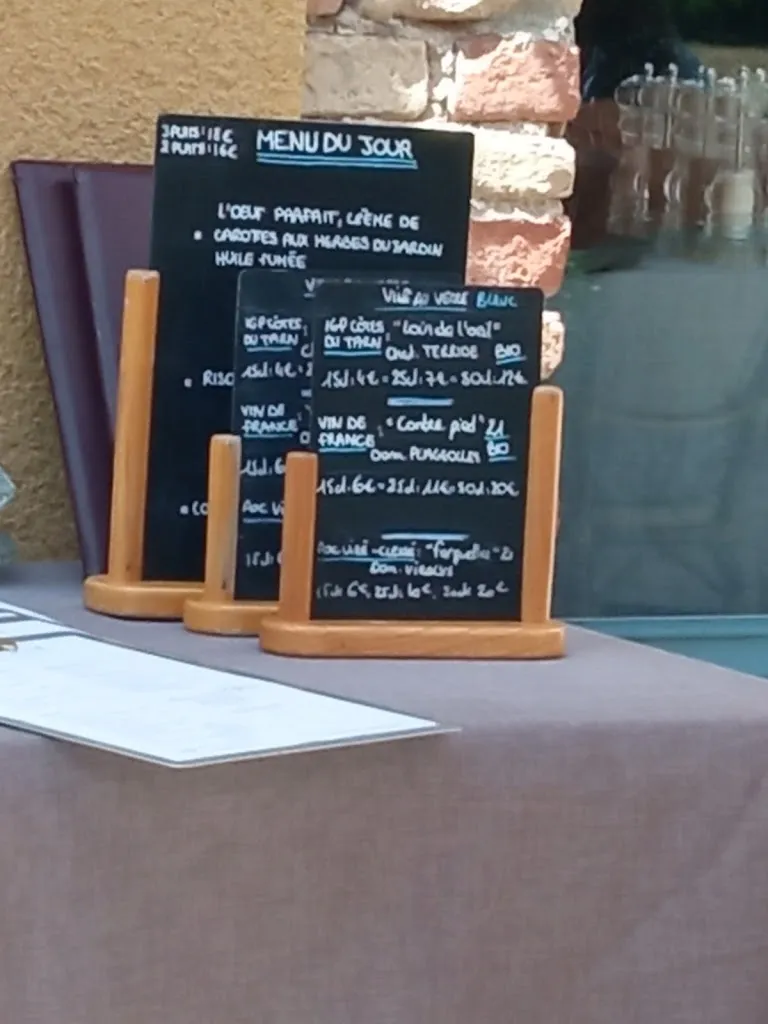 3 PLATS : 18€
2 PLATS : 16€
MENU DU JOUR
L'OEUF PARFAIT, CRÈME DE
• CAROTTES AUX HERBES DU JARDIN
HUILE FUMÉE
• RISO
• CO
IGP CÔTES
DU TARN
15cl : 4€ =
VIN DE
FRANCE
15cl : 6
AOC VI
15cl :
VIN AU VERRE BLANC
IGP CÔTES : "Loin de l'oeil"
DU TARN Chat. TERRIDE BIO
15cl : 4€ = 25cl : 7€ = 50cl : 12€
VIN DE : "Contre pied" 21
FRANCE Dom. PLAGEOLLES BIO
15cl : 6€ = 25cl : 11€ = 50cl : 20€
AOC VIRÉ-CLESSÉ : 21
Dom.
15cl 6€, 25cl : 10€, 50cl 20€